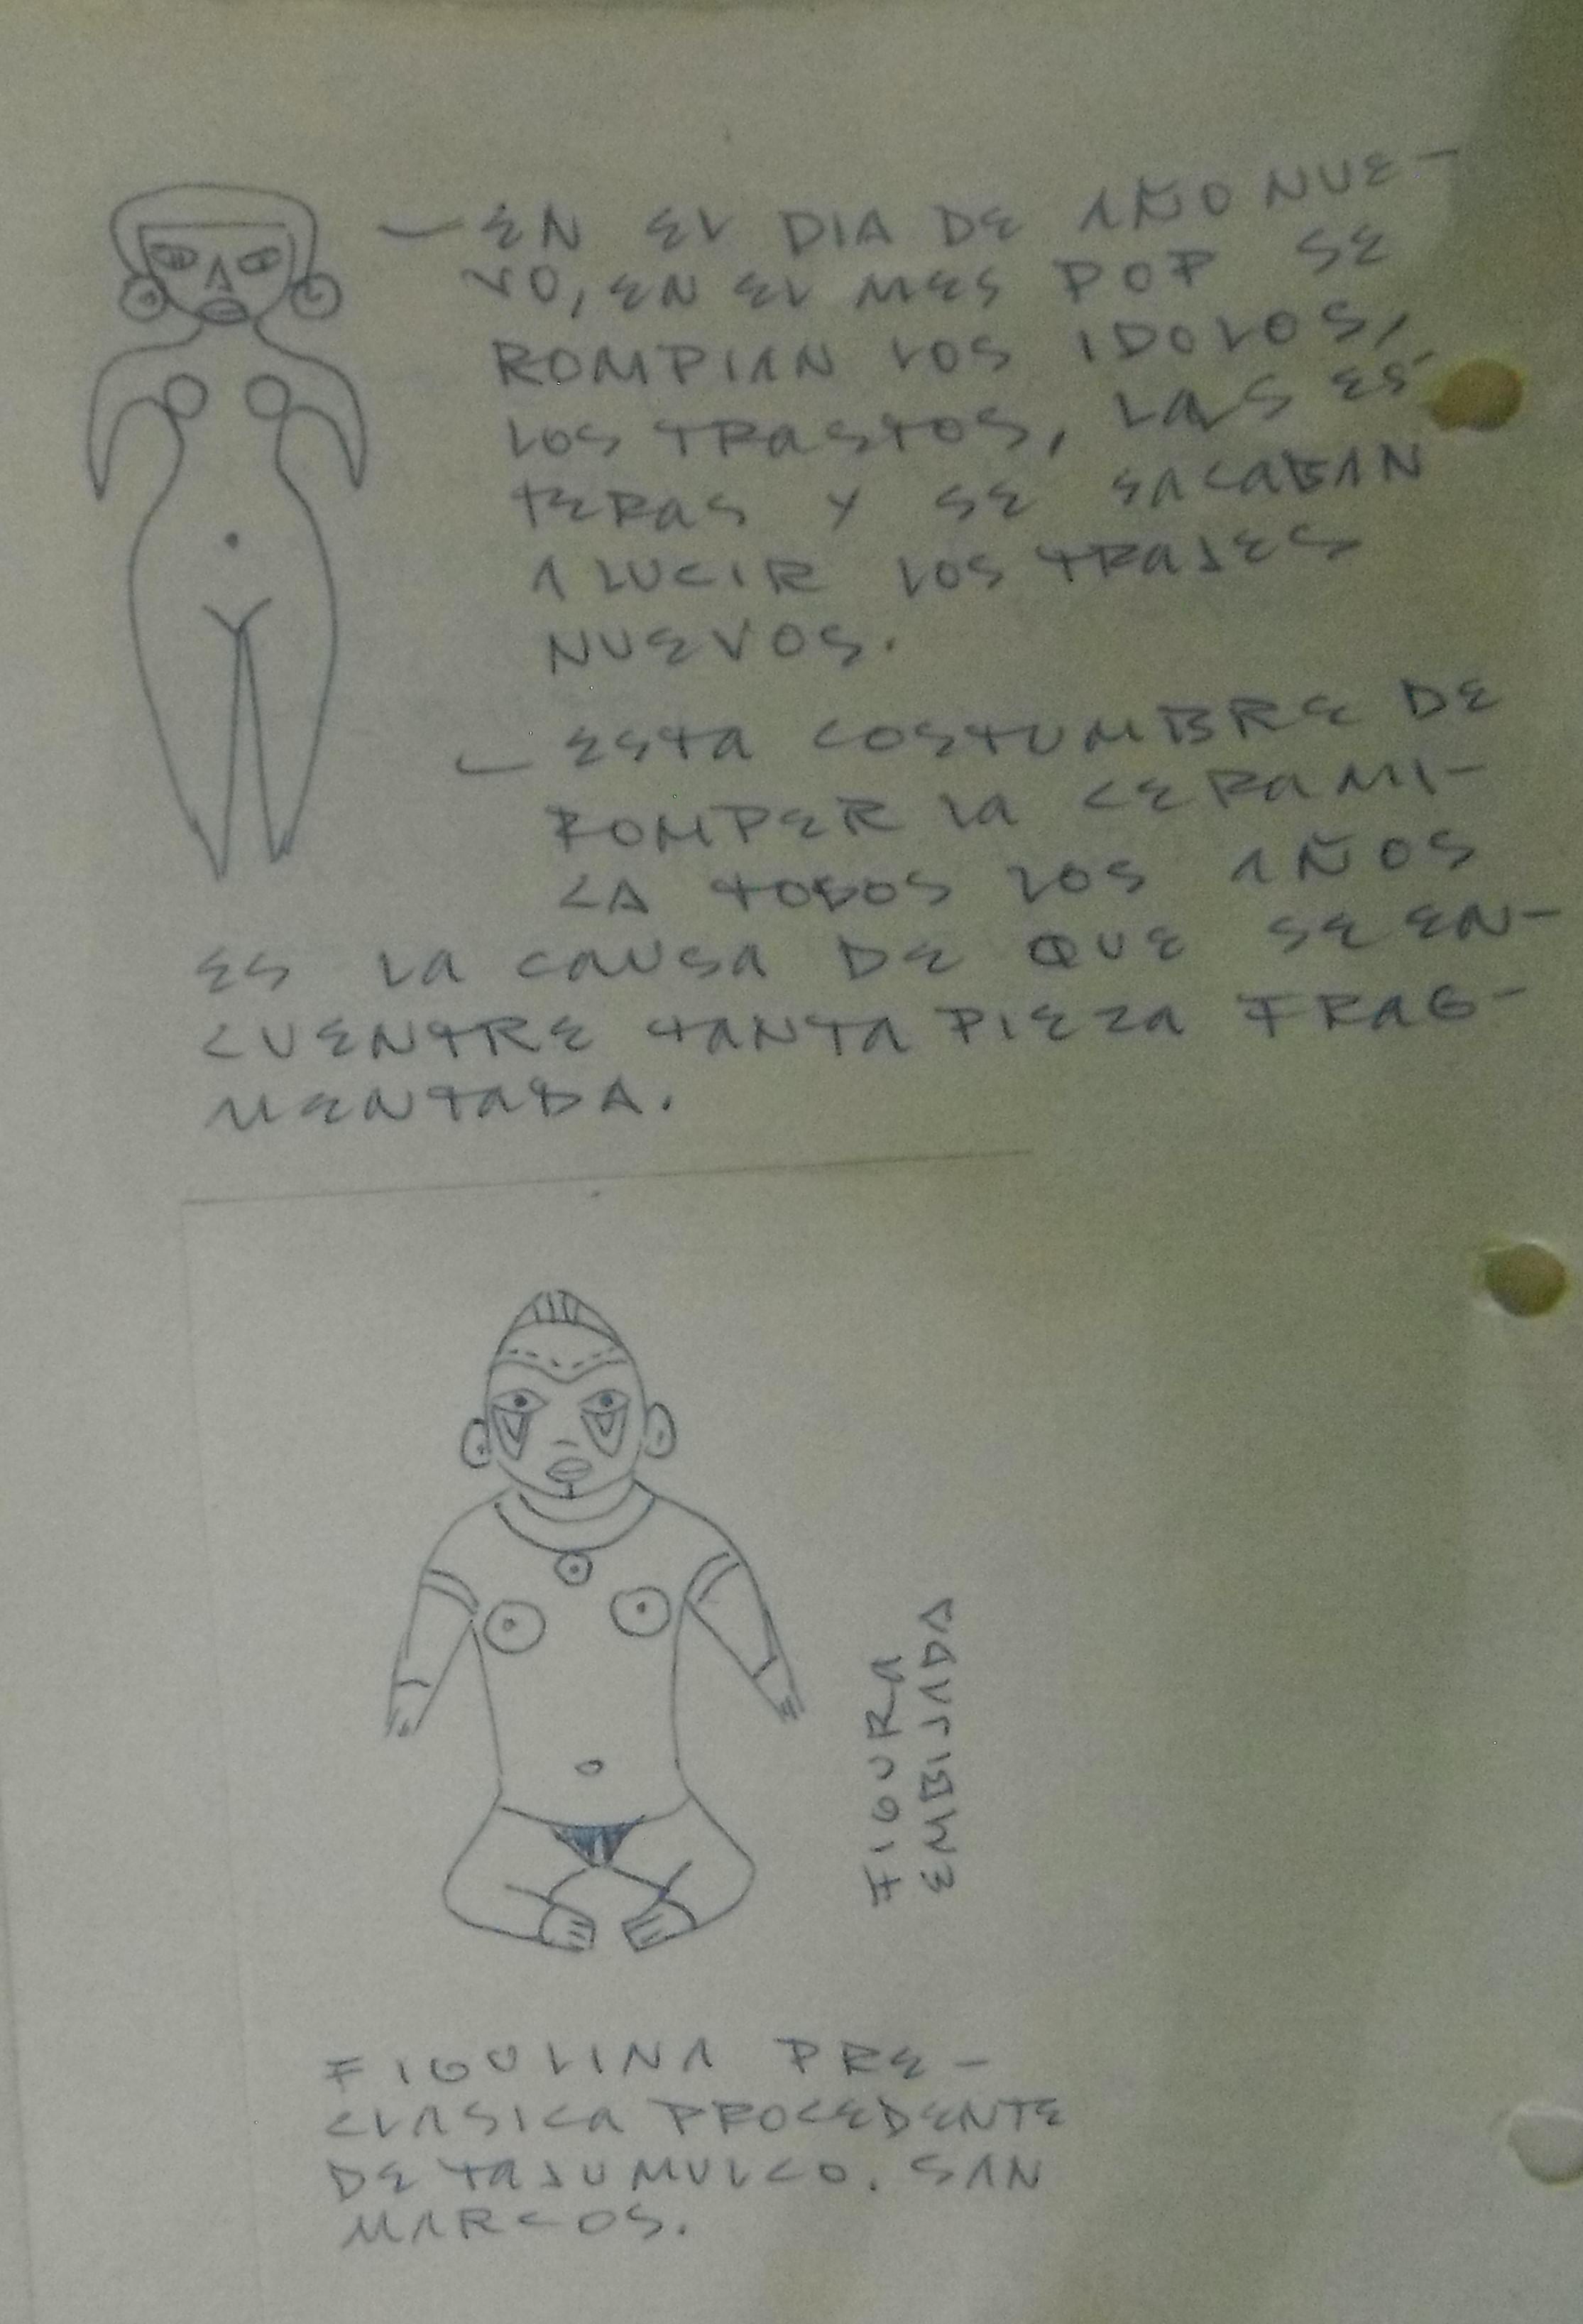 — EN EL DIA DE AÑO NUE-
VO, EN EL MES POP SE
ROMPIAN LOS IDOLOS,
LOS TRASTOS, LAS ES-
TERAS Y SE SACABAN
A LUCIR LOS TRAJES
NUEVOS.
— ESTA COSTUMBRE DE
ROMPER LA CERAMI-
CA TODOS LOS AÑOS
ES LA CAUSA DE QUE SE EN-
CUENTRE TANTA PIEZA FRAG-
MENTADA.
FIGURA
EMBIJADA
FIGULINA PRE-
CLASICA PROCEDENTE
DE TAJUMULCO. SAN
MARCOS.